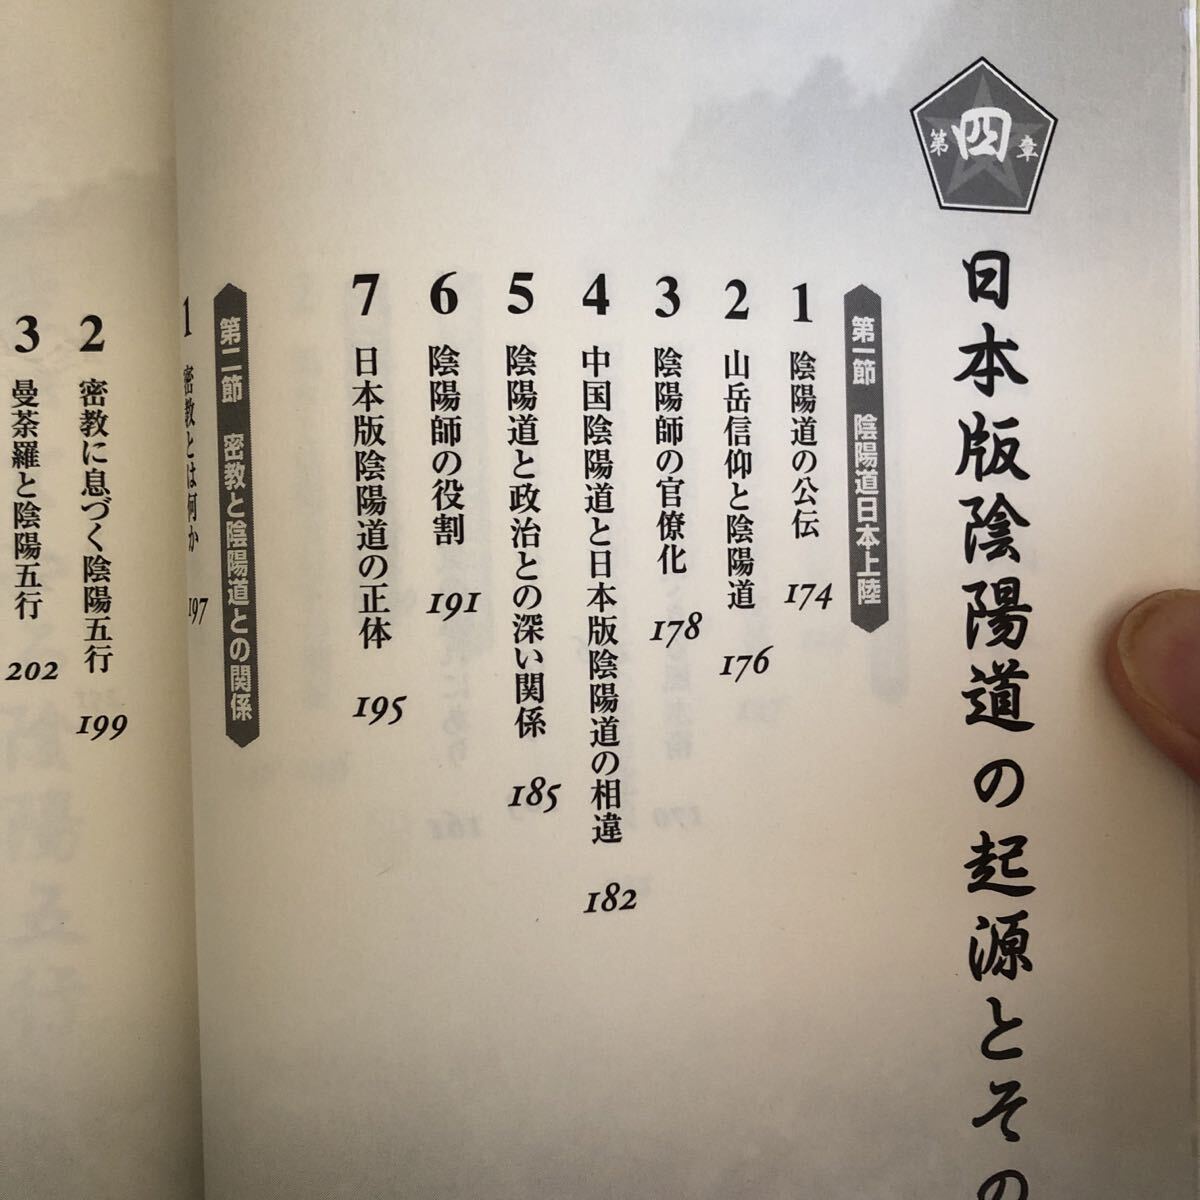 第四章
日本版陰陽道の起源とその
第一節 陰陽道日本上陸
1 陰陽道の公伝 174
2 山岳信仰と陰陽道 176
3 陰陽師の官僚化 178
4 中国陰陽道と日本版陰陽道の相違 182
5 陰陽道と政治との深い関係 185
6 陰陽師の役割 191
7 日本版陰陽道の正体 195
第二節 密教と陰陽道との関係
1 密教とは何か 197
2 密教に息づく陰陽五行 199
3 曼荼羅と陰陽五行 202